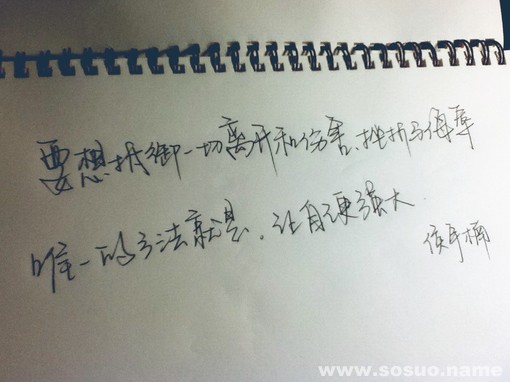 要想抵御一切离开和伤害、挫折与侮辱
唯一的方法就是。让自己更强大
www.sosuo.name